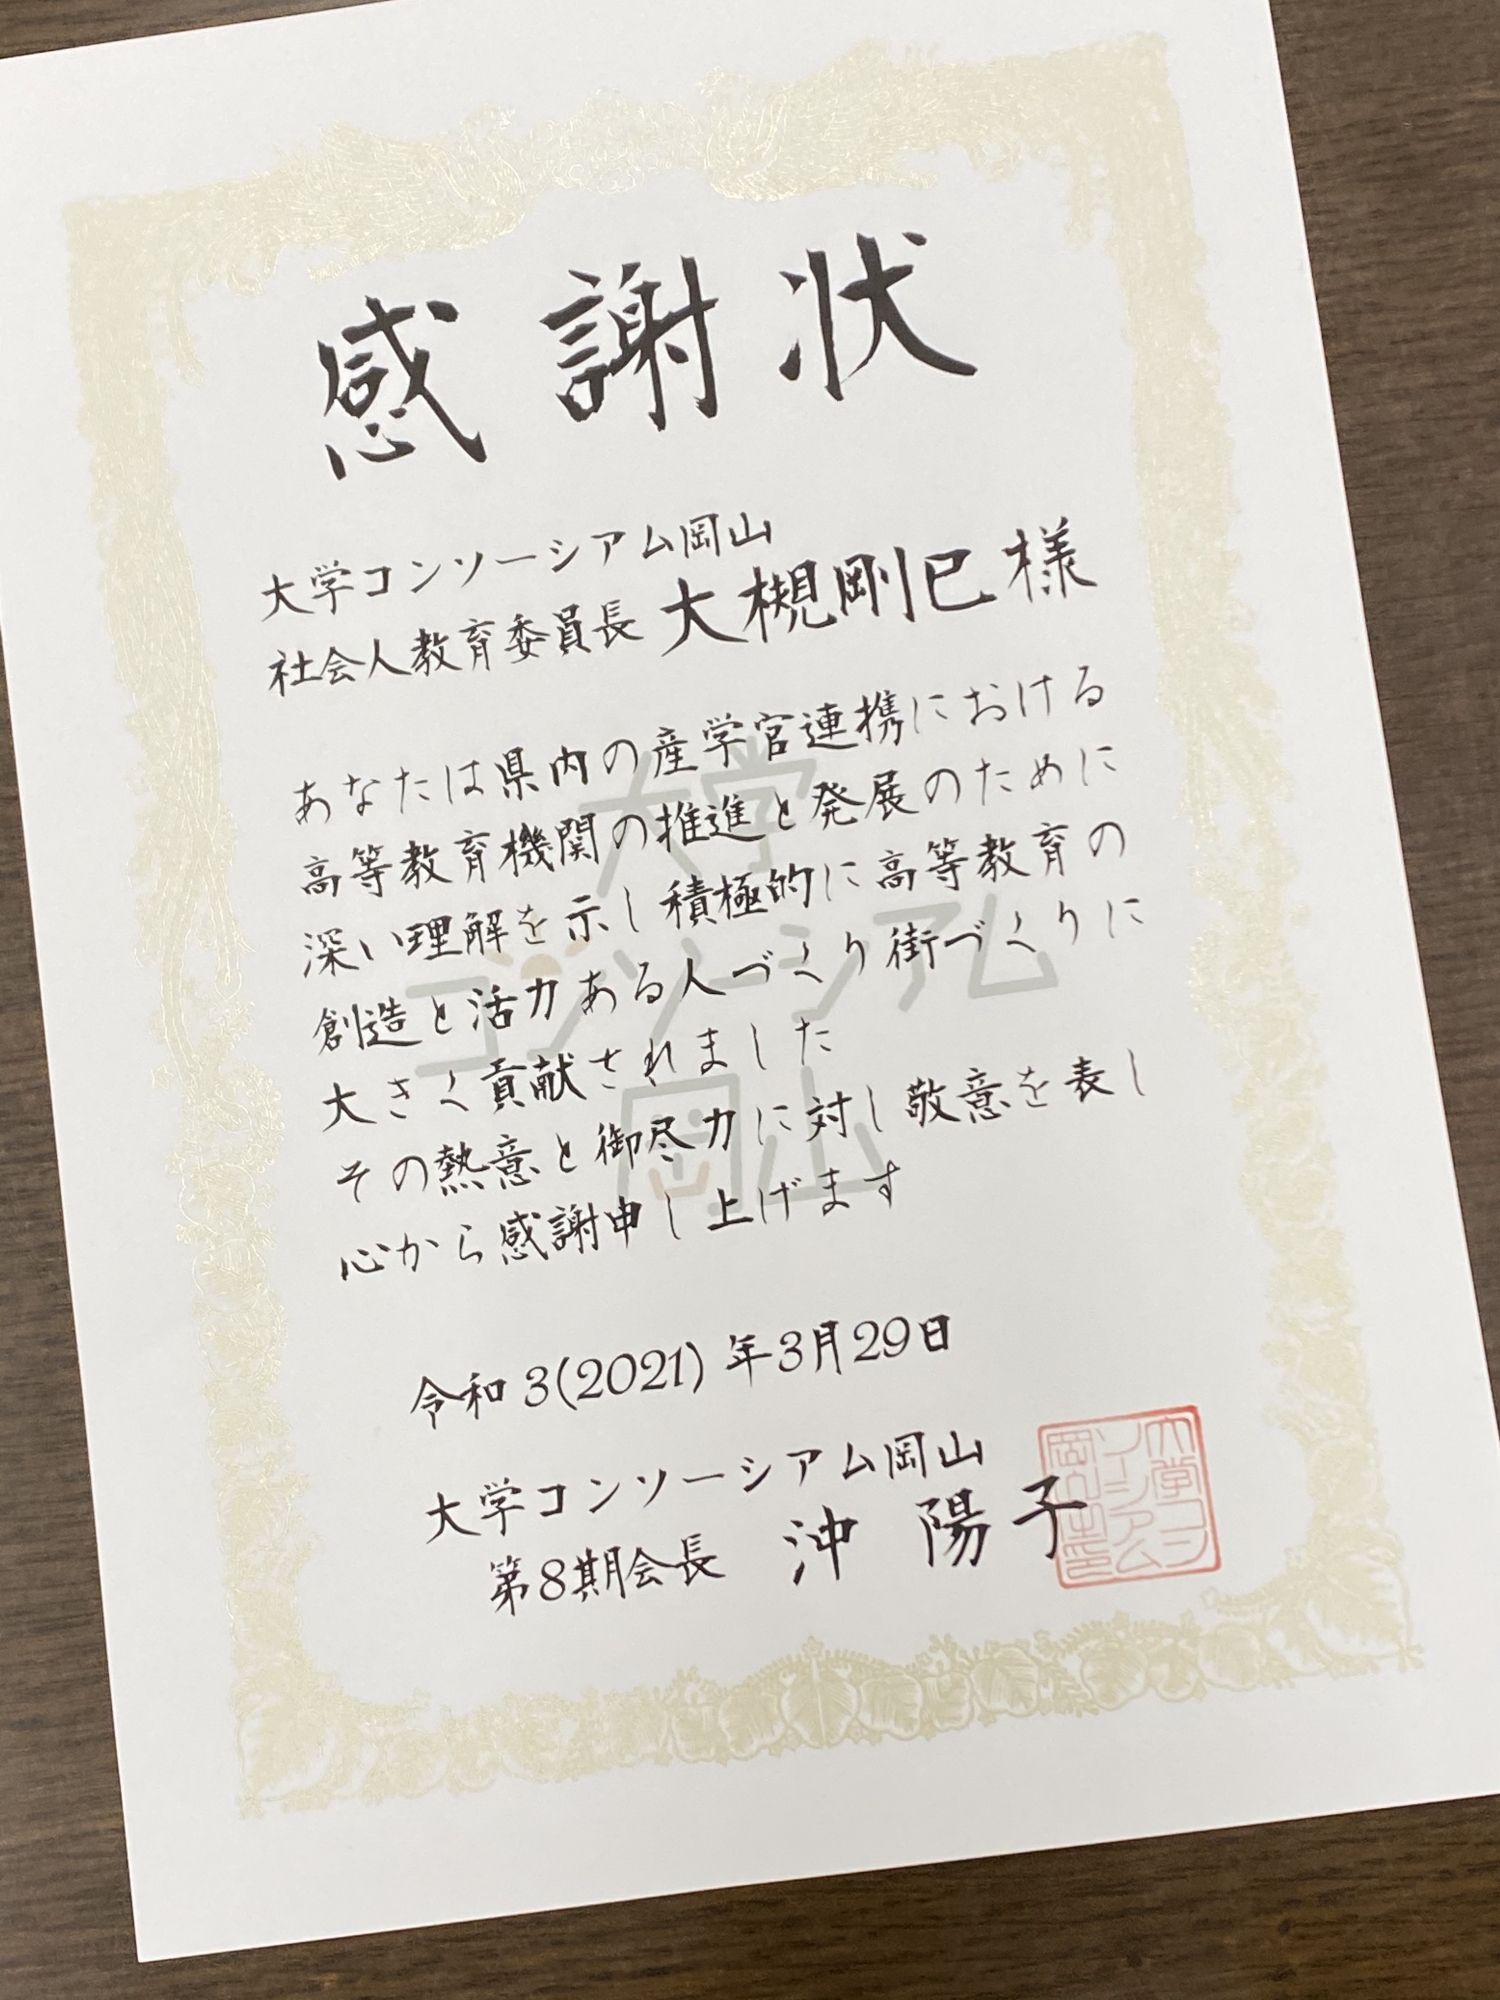 感謝状
大学コンソーシアム岡山
社会人教育委員長 大槻剛巳 様
あなたは県内の産学官連携における
高等教育機関の推進と発展のために
深い理解を示し積極的に高等教育の
創造と活力ある人づくり街づくりに
大きく貢献されました
その熱意と御尽力に対し敬意を表し
心から感謝申し上げます
令和3(2021)年3月29日
大学コンソーシアム岡山
第8期会長 沖 陽子
大学
コンソーシアム
岡山
大学コン
ソーシアム
岡山之印